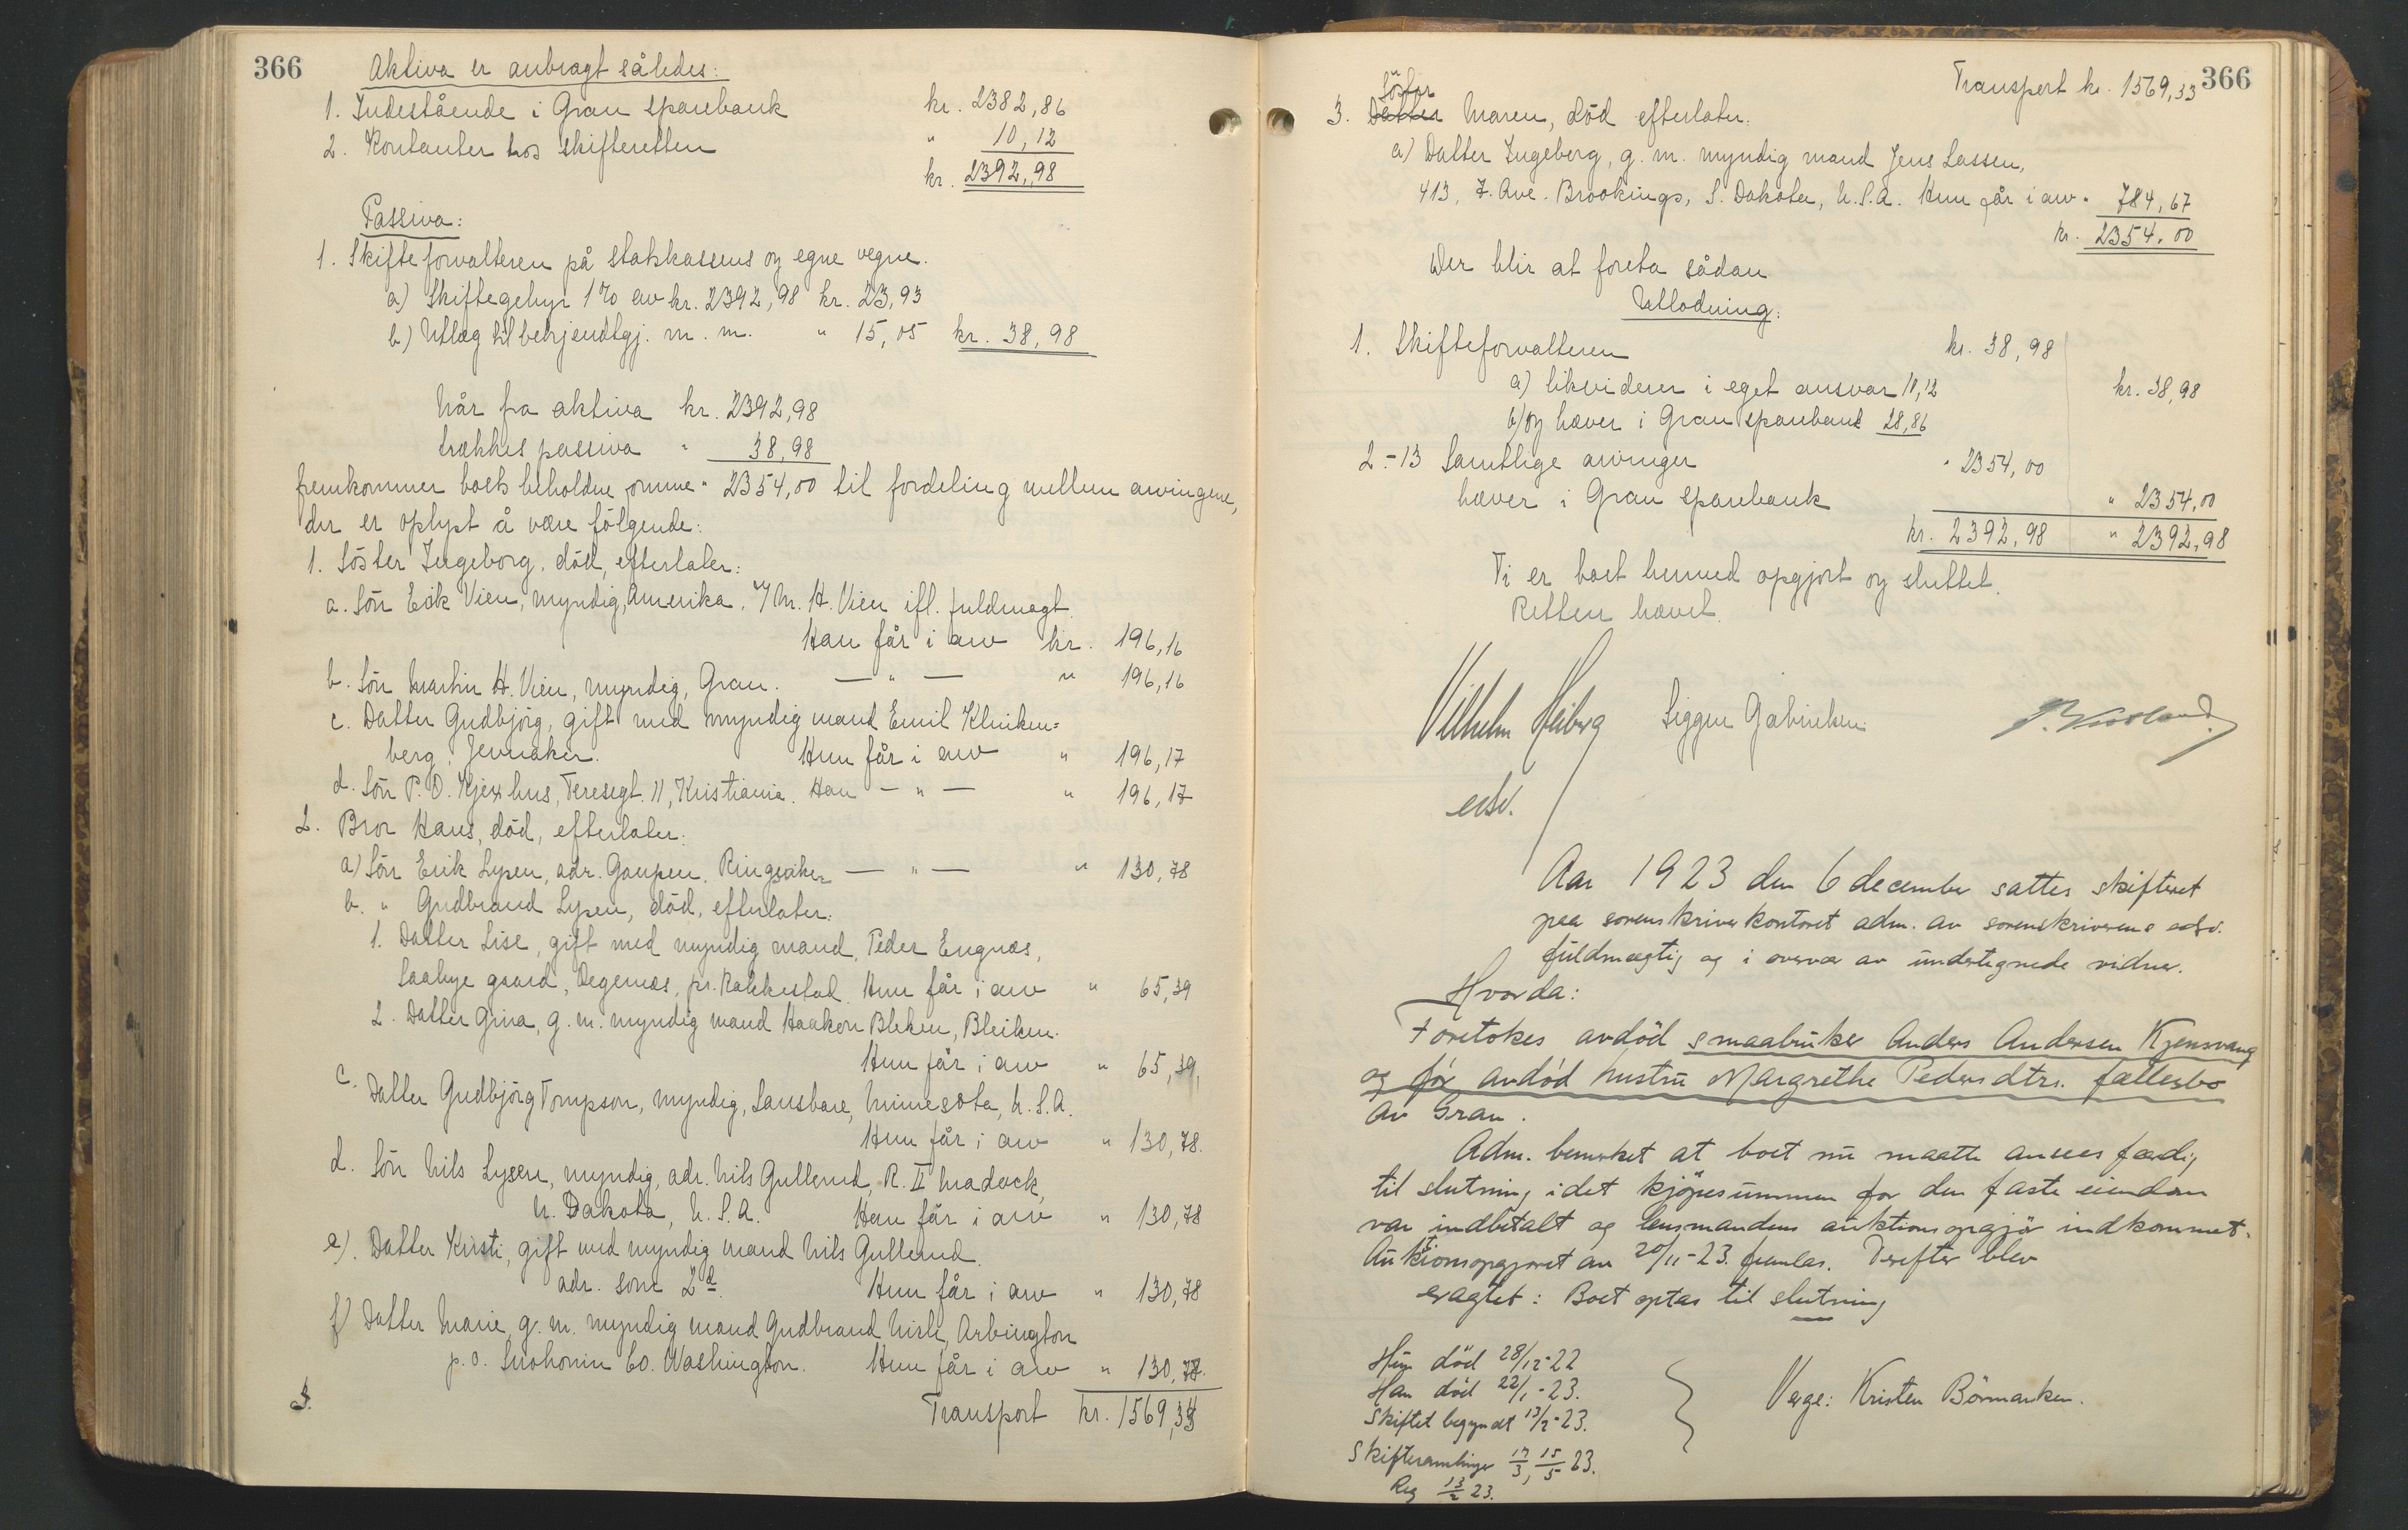 366
Aktiva er anbragt således:
1. Indestående i Gran sparebank kr. 2382,86
2. Kontanter hos skifteretten " 10,12
kr. 2392,98
Passiva:
1. Skifteforvalteren på statskassens og egne vegne.
a) Skiftegebyr 1% av kr. 2392,98 kr. 23,93
b) Utlæg til bekjendtgj. m.m. " 15,05 kr. 38,98
Når fra aktiva kr. 2392,98
trækkes passiva " 38,98
fremkommer boets beholdne omme " 2354,00 til fordeling mellem arvingene,
der er oplyst å være følgende:
1. Söster Ingeborg, död, efterlater:
a. Sön Erik Vien, myndig, Amerika. v/ M. H. Vien ifl. fuldmagt.
Han får i arv kr. 196,16
b. Sön Martin H. Vien, myndig, Gran. — " — " 196,16
c. Datter Gudbjörg, gift med myndig mand Emil Klinken=
berg, Jevnaker. Hun får i arv " 196,17
d. Sön P. O. Kjexhus, Teresegt. 11, Kristiania. Han — " — " 196,17
2. Bror Hans, död, efterlater:
a) Sön Erik Lysen, adr. Gaupen, Ringsaker — " — " 130,78
b. " Gudbrand Lysen, död, efterlater:
1. Datter Lise, gift med myndig mand, Peder Engnæs,
Saabye gaard, Degernæs, pr. Rakkestad. Hun får i arv " 65,39
2. Datter Gina, g. m. myndig mand Haakon Bleken, Bleiken.
Hun får i arv " 65,39,
c. Datter Gudbjörg Tompson, myndig, Sansbare, Minnesota, U.S.A.
Hun får i arv " 130,78.
d. Sön Nils Lysen, myndig, adr. Nils Gullerud, R. II Madock,
N. Dakota, U.S.A. Han får i arv " 130,78
e). Datter Kirsti, gift med myndig mand Nils Gullerud.
adr. som 2 d. Hun får i arv " 130,78
f) Datter Marie, g. m. myndig mand Gudbrand Arbington
p.o. Snohomin Co. Washington. Hun får i arv " 130,78.
3.
Transport kr. 1569,33
366
Transport kr. 1569,33
Söster
3. Datter Maren, död efterlater:
a) Datter Ingeborg, g. m. myndig mand Jens Lassen,
413, 7. Ave. Brookings, S. Dakota, U.S.A. Hun får i arv " 784,67
kr. 2354.00
Der blir at foreta sådan
Utlodning:
1. Skifteforvalteren kr. 38,98
a) likviderer i eget ansvar 10,12 kr. 38,98
b) og hæver i Gran sparebank 28,86
2.-13 Samtlige arvinger " 2354,00
hæver i Gran sparebank " 2354,00
kr. 2392,98 " 2392,98
Ti er boet hermed opgjort og sluttet.
Retten hævet.
Vilhelm Heiberg Sigger Gabrielsen
edsv.
Aar 1923 den 6 december sattes skifteret
paa sorenskriverkontoret adm. av sorenskriverens edsv.
fuldmægtig og i overvær av undertegnede vidner.
Hvorda:
Foretokes avdöd smaabruker Anders Andersen Kjensvang
og för avdöd hustru Margrethe Pedersdtrs. fællesbo
av Gran.
Adm. bemerket at boet nu maatte ansees færdig
til slutning idet kjöpesummen for den faste eiendom
var indbetalt og lensmandens auktionsopgjör indkommet.
Auktionsopgjøret av 20/11-23 fremlas. Derefter blev
eragtet: Boet optas til slutning
Hun död 28/12-22
Han död 22/1-23.
Skiftet begyndt 13/2-23.
Skiftesamlinger 17/3, 15/5 23.
Reg 13/2 23.
Verge: Kristen Börmarken.